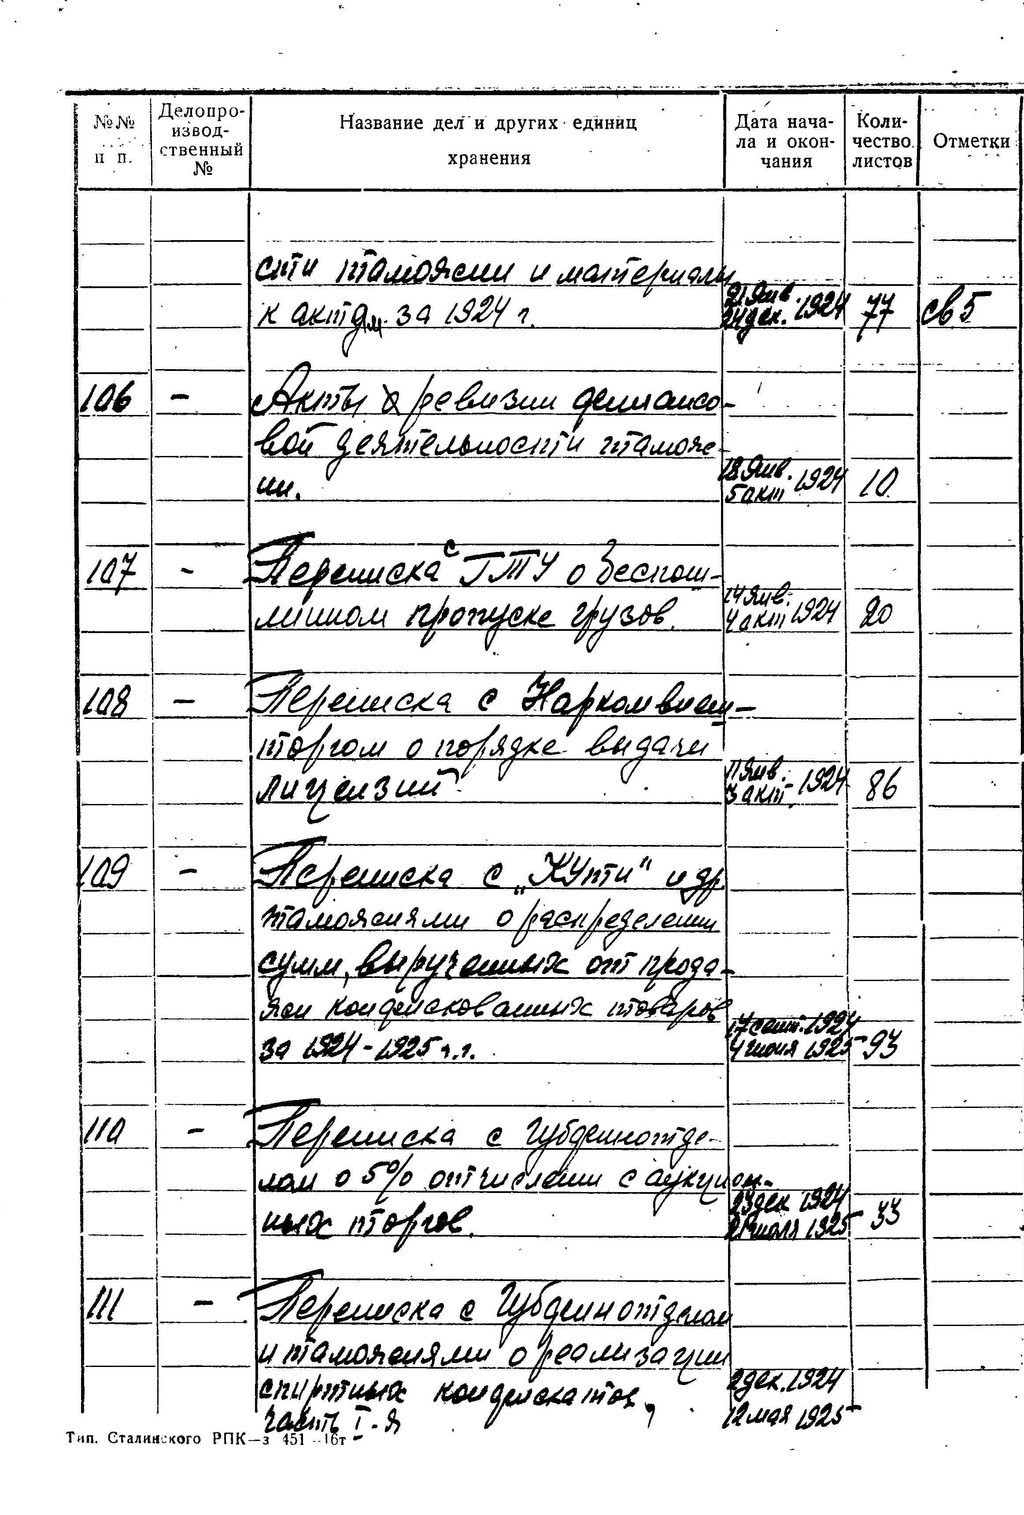 №№ п п.
Делопроизводственный №
Название дел и других единиц хранения
Дата начала и окончания
Количество листов
Отметки
сти таможни и материалы
к актам за 1924 г.
21 янв. 24 дек. 1924
77
св 5
106
-
Акты о ревизии финансо-
вой деятельности тамож-
ни.
18 янв. 5 окт 1924
10
107
-
Переписка с ГТУ о беспош-
линном пропуске грузов.
14 янв. 4 окт 1924
20
108
-
Переписка с Наркомвнеш-
торгом о порядке выдачи
лицензий
11 янв. 3 окт. 1924
86
109
-
Переписка с „КУпти" и др.
таможнями о распределении
сумм, вырученных от прода-
жи конфискованных товаров
за 1924-1925 г.г.
17 сент. 1924
4 июня 1925
93
110
-
Переписка с Губфинотде-
лом о 5% отчислении с аукцион-
ных торгов.
23 дек 1924
21 июля 1925
33
111
-
Переписка с Губфинотделом
и таможнями о реализации
спиртных конфискатов,
часть I-я
2 дек. 1924
12 мая 1925
Тип. Сталинского РПК—з 451 - 16т